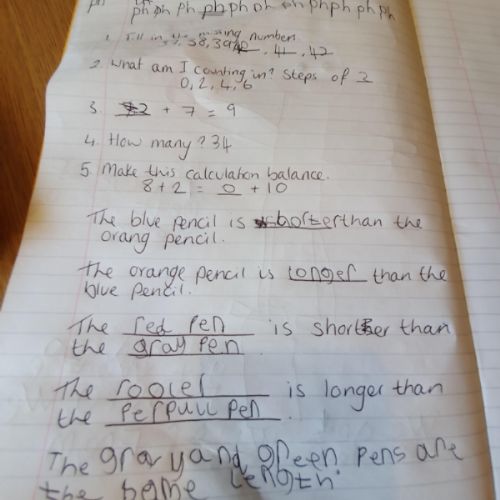 ph ph ph ph ph ph ph ph ph ph ph ph
1. Fill in the missing numbers
38, 39, 40, 41, 42
2. What am I counting in? Steps of 2
0, 2, 4, 6
3. 2 + 7 = 9
4. How many? 34
5. Make this calculation balance.
8 + 2 = 0 + 10
The blue pencil is shorter than the
orang pencil.
The orange pencil is longer than the
blue pencil.
The red pen is shorter than
the gray pen
The rooler is longer than
the perpull pen.
The gray and green pens are
the same length.